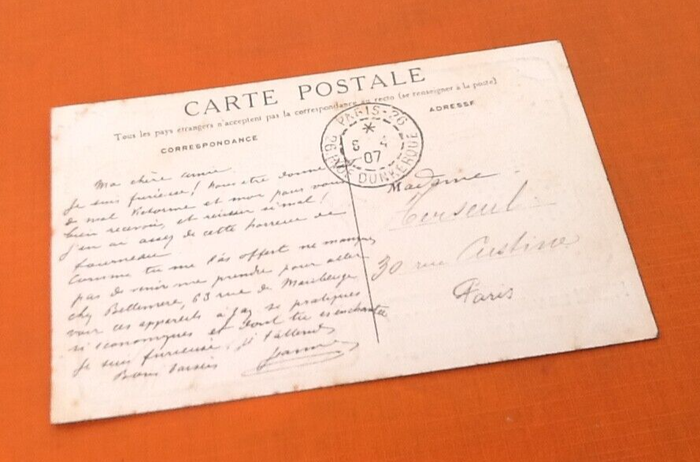 CARTE POSTALE
Tous les pays étrangers n'acceptent pas la correspondance au recto (se renseigner à la poste)
CORRESPONDANCE
ADRESSE
PARIS-26
5 4
07
R. DUNKERQUE
Ma chère amie,
Je suis furieuse ! donne
de mal et mon pour vous
bien recevoir, et si mal !
j'en ai assez de cette horreur de
fourneau.
Comme tu me l'as offert ne manque
pas de venir me prendre pour aller
chez 63 rue de Maubeuge
voir ces appareils à gaz si pratiques
si économiques et dont tu es enchantée
Je suis furieuse. Je t'attends
Bons baisers
Jeanne
Madame
30 rue Custine
Paris